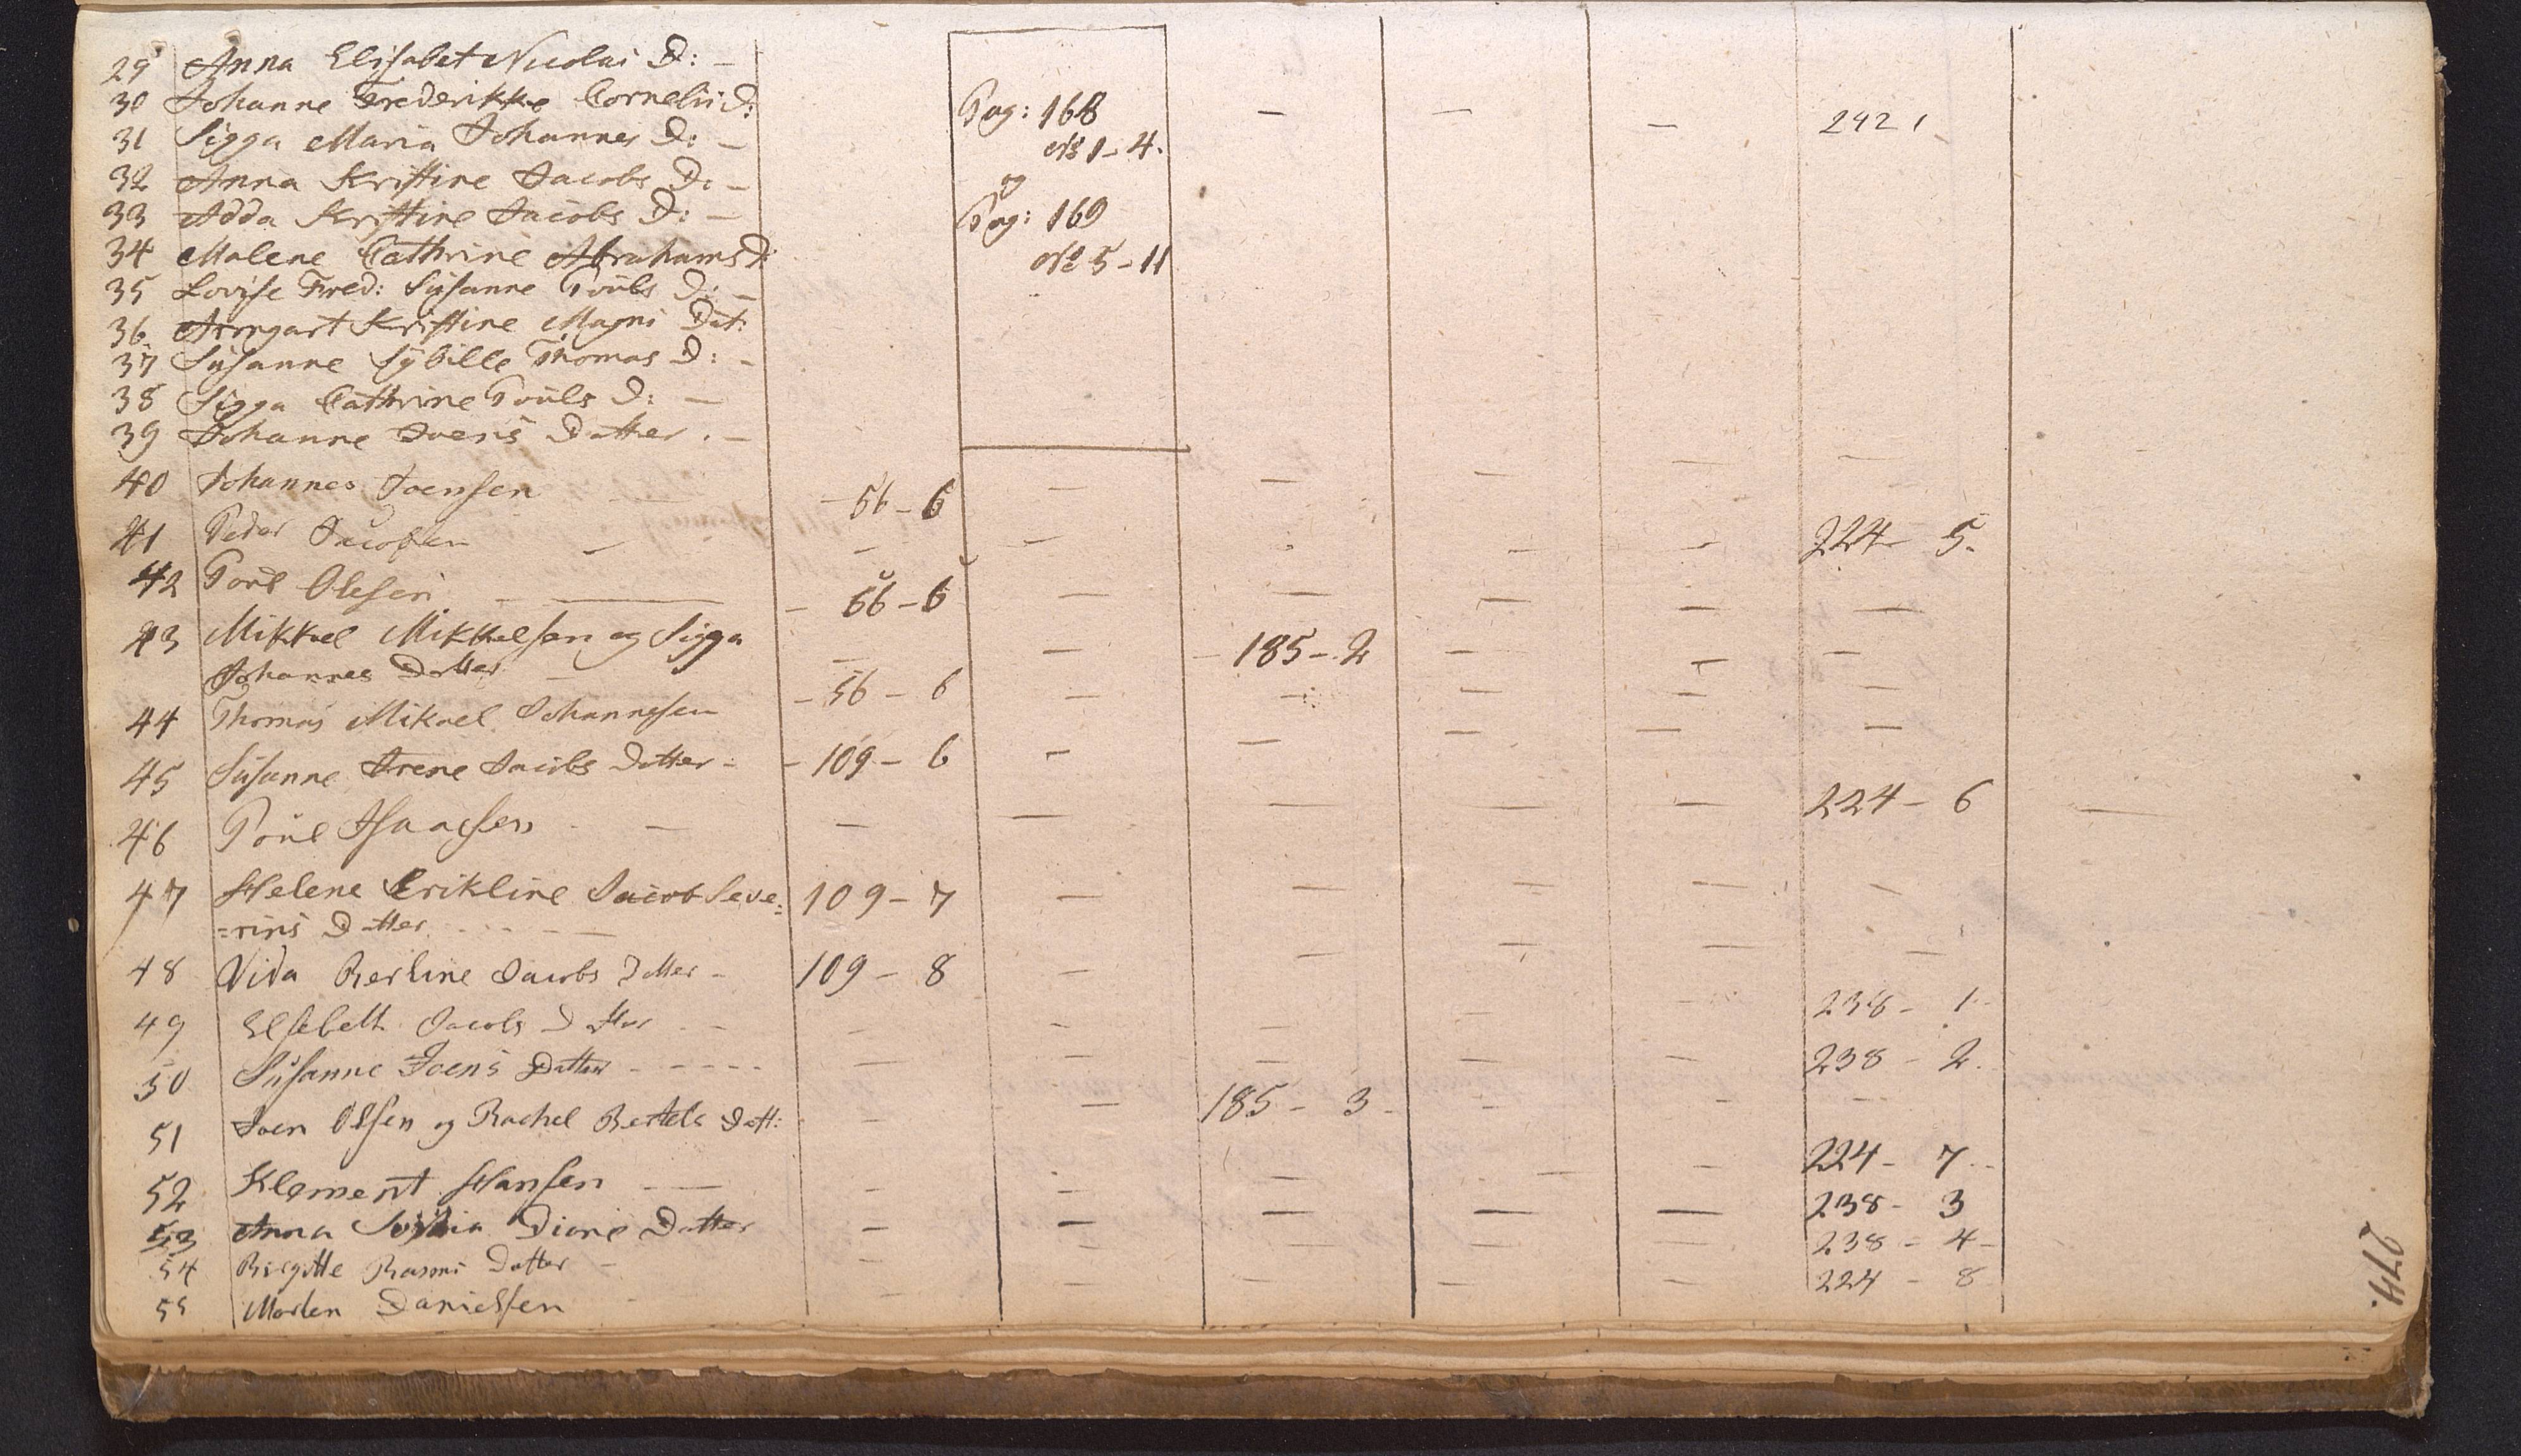 29 Anna Elisabet Nicolai D: -
30 Johanne Frederikke Cornelii D:
31 Sigga Maria Johannes D: -
32 Anna Kristine Jacobs D: -
33 Adda Kristine Jacobs D: -
34 Malene Cathrine Abrahams D:
35 Lovise Fred: Susanne Pouls D: -
36 Armgart Kristine Magni Dat:
37 Susanne Sybille Thomas D: -
38 Sigga Cathrine Pouls D: -
39 Johanne Joens Datter. -
Pag: 168 - - - 242 1
No 1-4.
og
Pag: 169
No 5-11
40 Johannes Joensen - 56-6 - - - - -
41 Peder Jacobsen - - - - - - 224 5.
42 Poul Olesen - 66-6 - - - - -
43 Mikkel Mikkelsen og Sigga
Johannes Datter - - - 185-2 - - -
44 Thomas Mikael Johannesen - 56-6 - - - - -
45 Susanne Irene Jacobs Datter - - 109-6 - - - - -
46 Poul Isaacsen - - - - - - 224-6 -
47 Helene Erikline Jacob Seve=
=rins Datter - - - 109-7 - - - - -
48 Vida Berline Jacobs Datter - 109-8 - - - - -
49 Elsebeth Jacobs Datter - - - - - - 238-1
50 Susanne Joens Datter - - - - - - - - - 238-2.
51 Joen Olsen og Rachel Bertels Datt: - - 185-3 - - -
52 Klement Hansen - - - - - - 224-7
53 Anna Sophia Dioni Datter - - - - - 238-3
54 Birgitte Rasmi Datter - - - - - - 238-4
55 Morten Danielsen - - - - - 224-8
274.